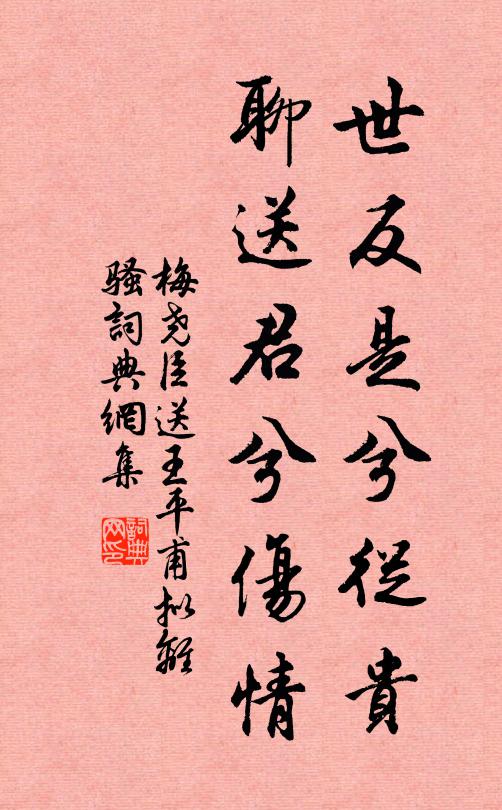 世反是兮從貴
聊送君兮傷情
梅尧臣送王平甫拟離
骚詞典網集
詞典
网印